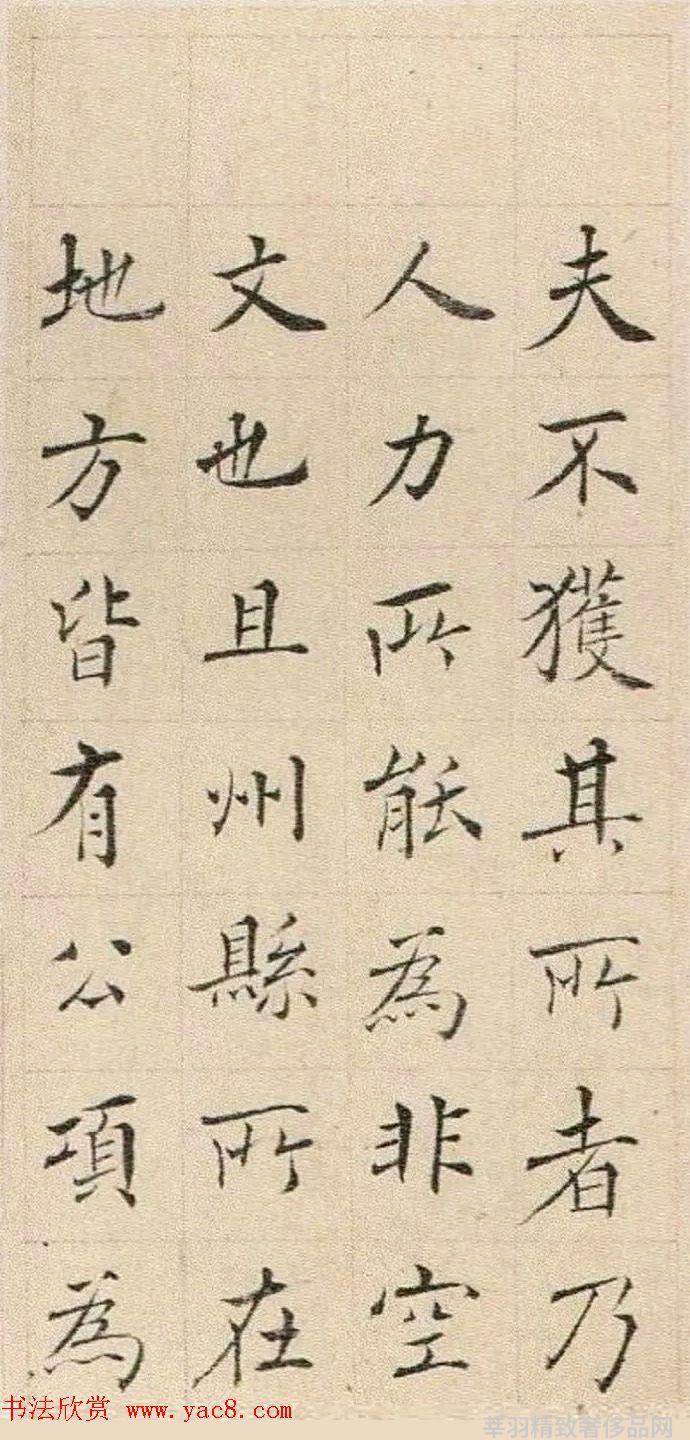 夫不獲其所者乃
人力所能為非空
文也且州縣所在
地方皆有公項為
书法欣赏 www.yac8.com
莘羽精致奢侈品网